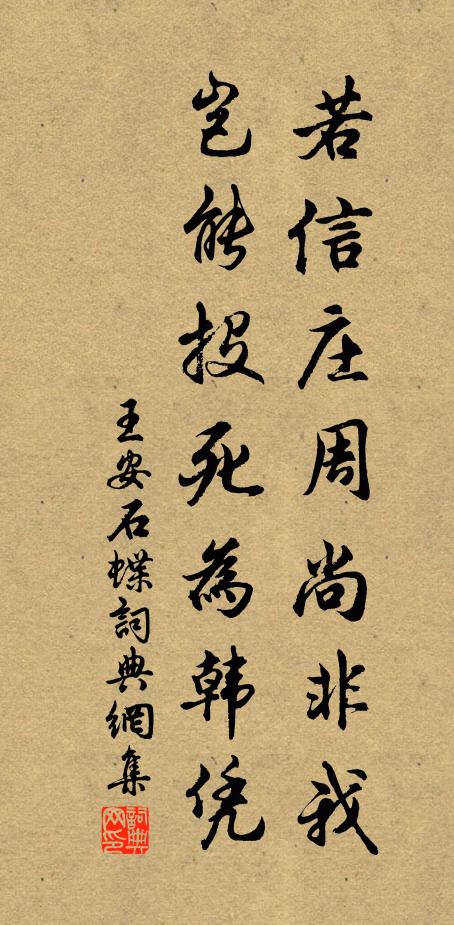 若信庄周尚非我
岂能投死為韩凭
王安石蝶詞典網集
詞典網印